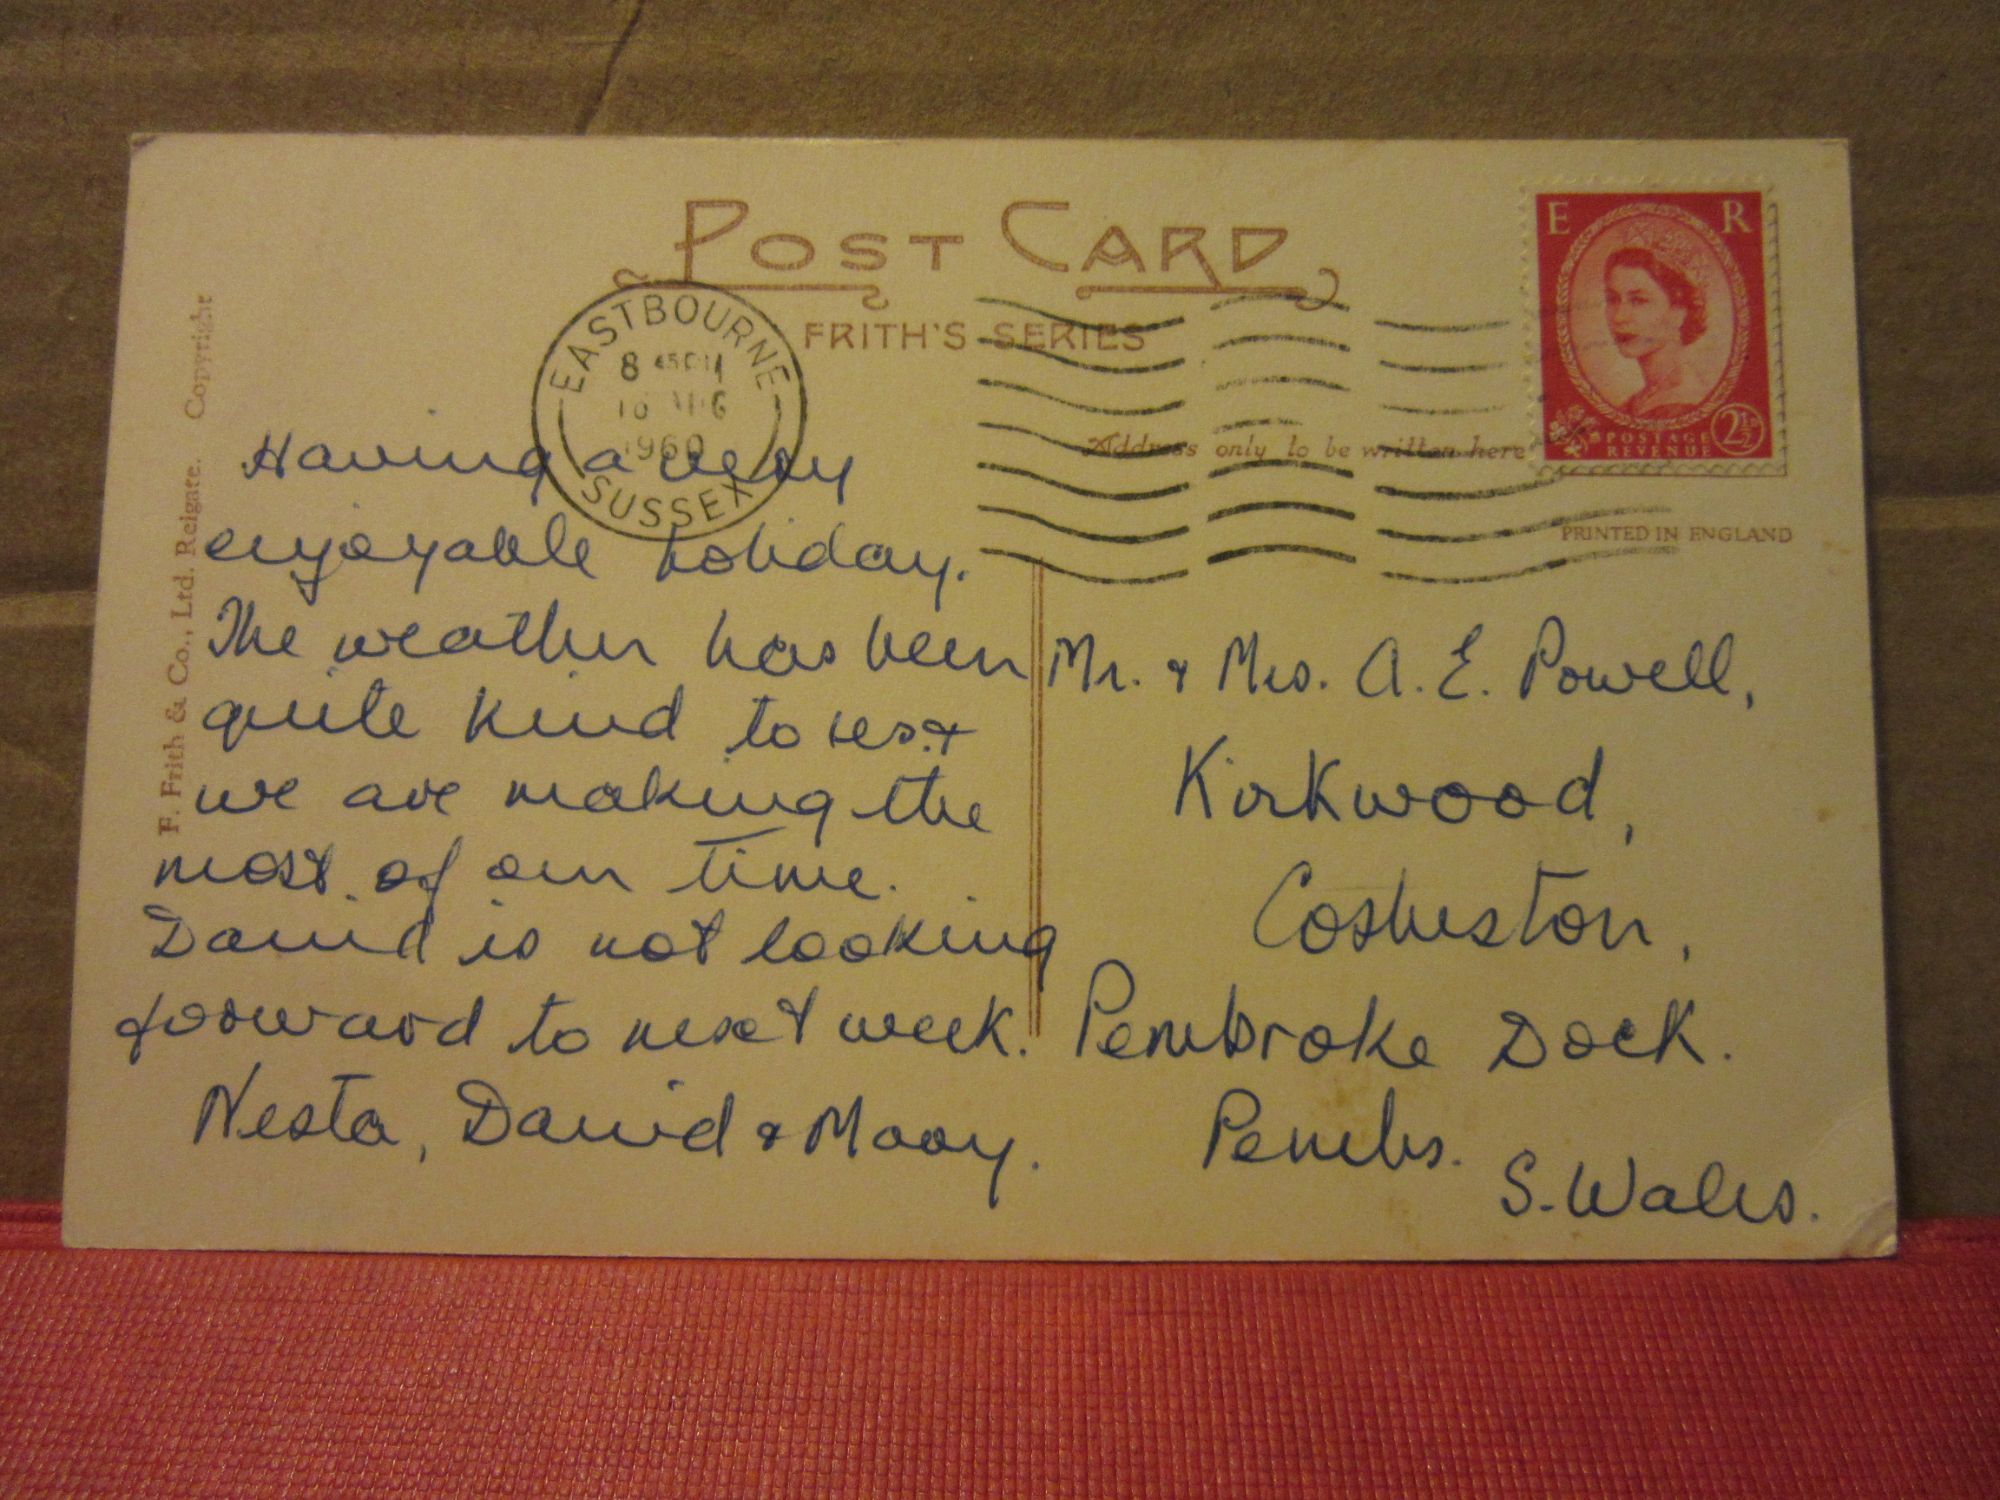 POST CARD
FRITH'S SERIES
EASTBOURNE
8 45 PM
AUG
1960
SUSSEX
E R
POSTAGE
REVENUE
2½D
Address only to be written here
PRINTED IN ENGLAND
F. Frith & Co., Ltd. Reigate. Copyright
Having a very
enjoyable holiday.
The weather has been
quite kind to us &
we are making the
most of our time.
David is not looking
forward to next week.
Nesta, David & Mary.
Mr. & Mrs. A. E. Powell,
Kirkwood,
Cosheston,
Pembroke Dock.
Pembs.
S. Wales.